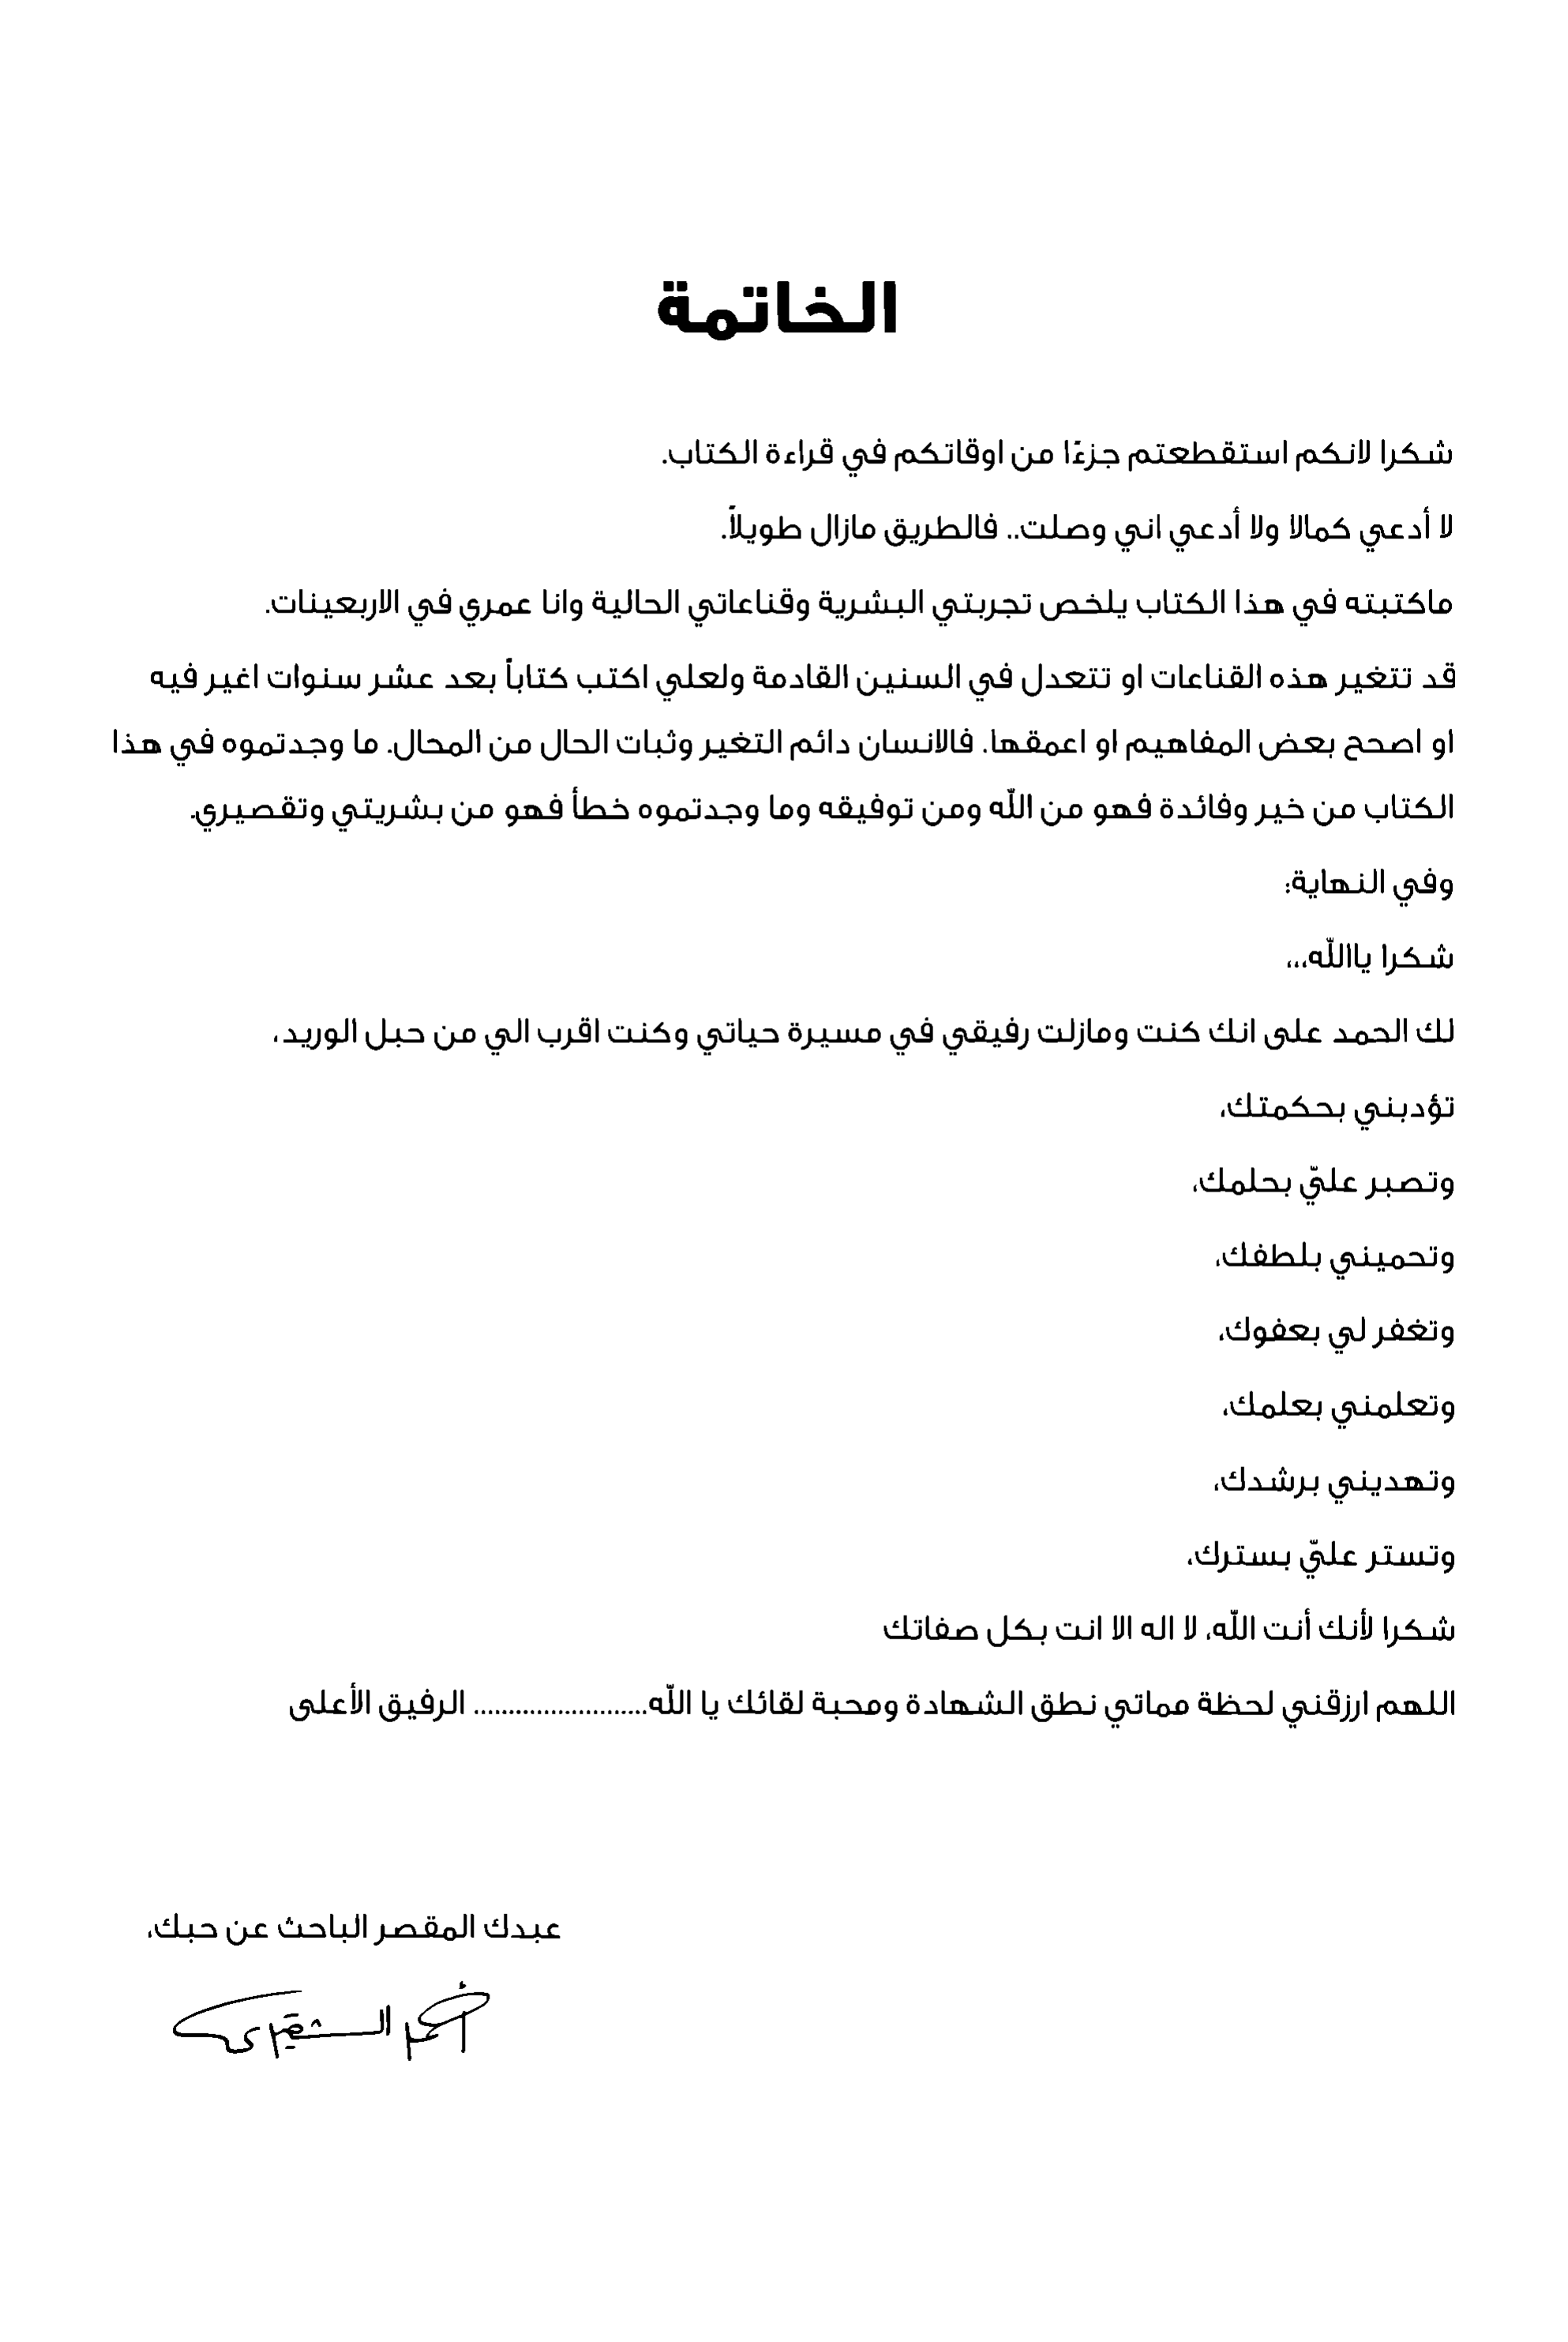 الخاتمة
شكرا لانكم استقطعتم جزءًا من اوقاتكم في قراءة الكتاب.
لا أدعي كمالا ولا أدعي اني وصلت.. فالطريق مازال طويلاً.
ماكتبته في هذا الكتاب يلخص تجربتي البشرية وقناعاتي الحالية وانا عمري في الاربعينات.
قد تتغير هذه القناعات او تتعدل في السنين القادمة ولعلي اكتب كتاباً بعد عشر سنوات اغير فيه
او اصحح بعض المفاهيم او اعمقها. فالانسان دائم التغير وثبات الحال من المحال. ما وجدتموه في هذا
الكتاب من خير وفائدة فهو من الله ومن توفيقه وما وجدتموه خطأ فهو من بشريتي وتقصيري.
وفي النهاية:
شكرا ياالله،،،
لك الحمد على انك كنت ومازلت رفيقي في مسيرة حياتي وكنت اقرب الي من حبل الوريد،
تؤدبني بحكمتك،
وتصبر عليّ بحلمك،
وتحميني بلطفك،
وتغفر لي بعفوك،
وتعلمني بعلمك،
وتهديني برشدك،
وتستر عليّ بسترك،
شكرا لأنك أنت الله، لا اله الا انت بكل صفاتك
اللهم ارزقني لحظة مماتي نطق الشهادة ومحبة لقائك يا الله......................... الرفيق الأعلى
عبدك المقصر الباحث عن حبك،
أحمد الشقيري